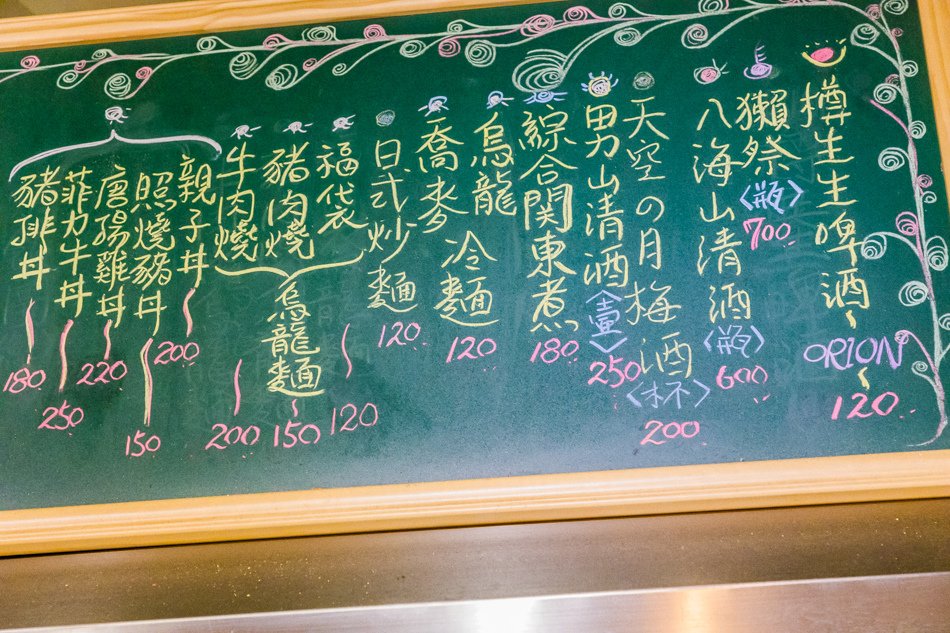 樽生生啤酒～
ORION
120
獺祭〈瓶〉
700
八海山清酒
〈瓶〉
600
天空の月梅酒
〈杯〉
200
男山清酒
〈壷〉
250
綜合關東煮
180
烏龍
喬麥
冷麵
120
日式炒麵
120
福袋
豬肉燒
牛肉燒
烏龍麵
120
150
200
親子丼
200
照燒豬丼
150
唐揚雞丼
220
菲力牛丼
250
豬排丼
180